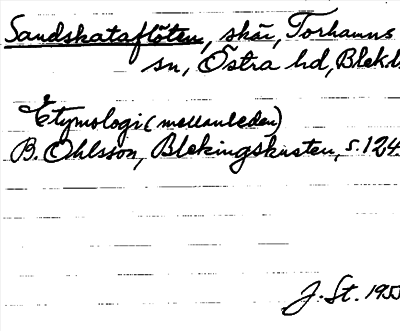 Sandskataflöten, skär, Torhamns
sn, Östra hd, Blek.l.
Etymologi (mellanleden)
B. Ohlsson, Blekingskusten, s. 124.
J. St. 195